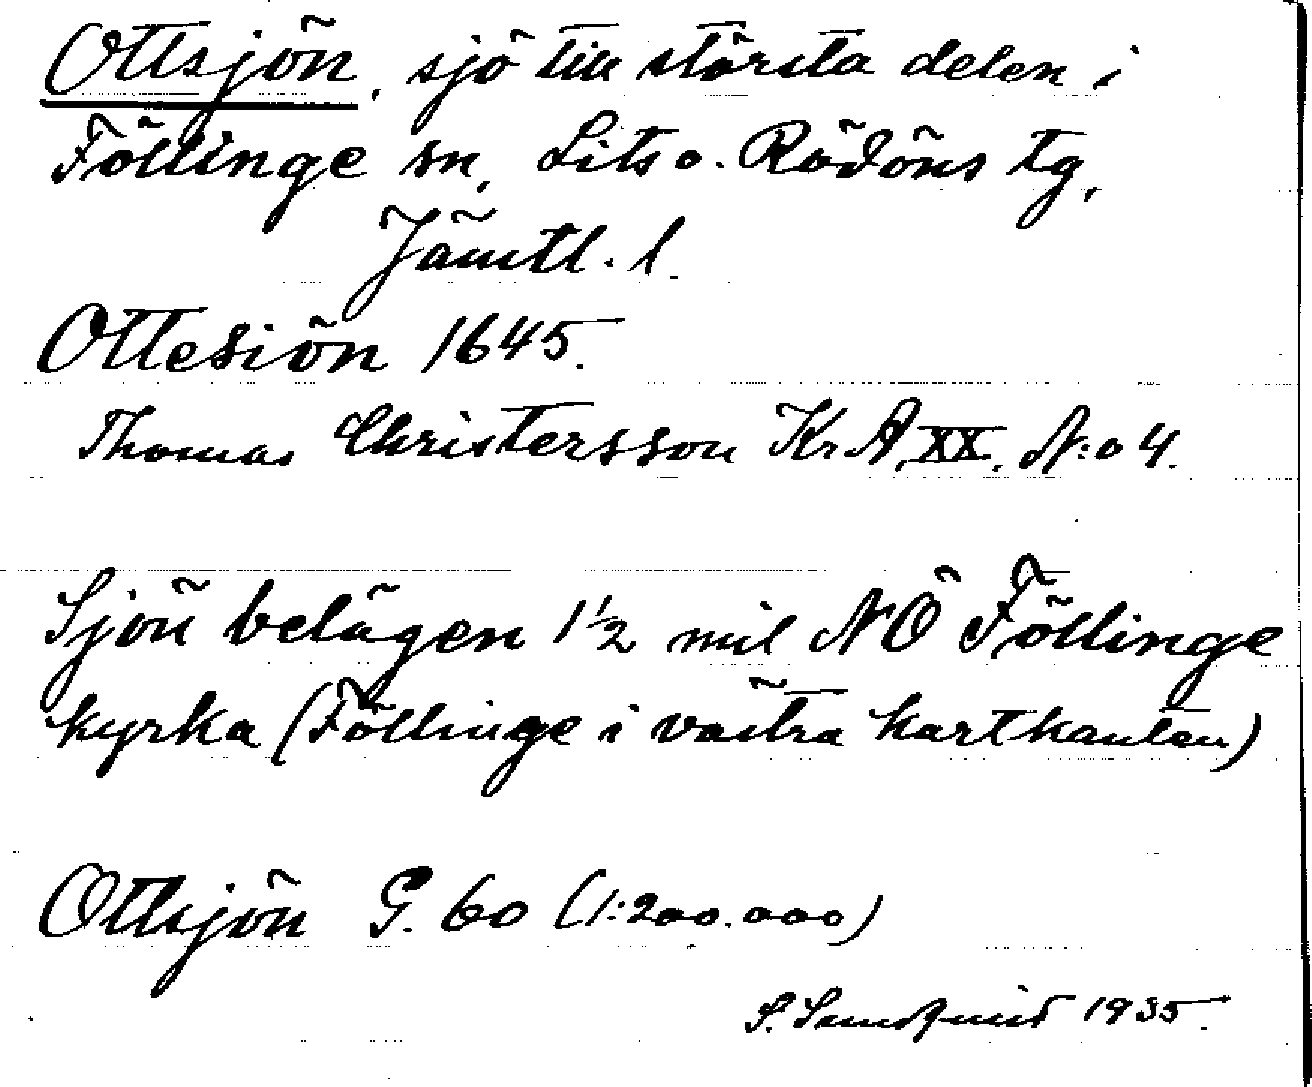 Ottsjön, sjö till största delen i
Föllinge sn, Lits o. Rödöns tg,
Jämtl. l.
Ottesiön 1645.
Thomas Christersson Kr A, XX, N:o 4.
Sjön belägen 1½ mil NÖ Föllinge
kyrka (Föllinge i västra kartkanten)
Ottsjön G. 60 (1:200.000)
S. Sundquist 1935.